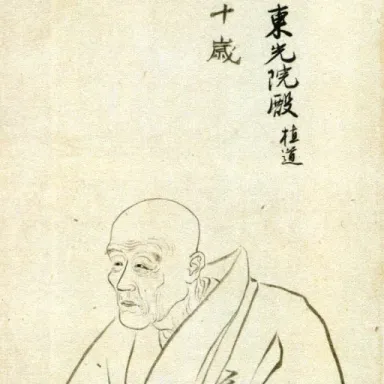 東光院殿 植道
十歳